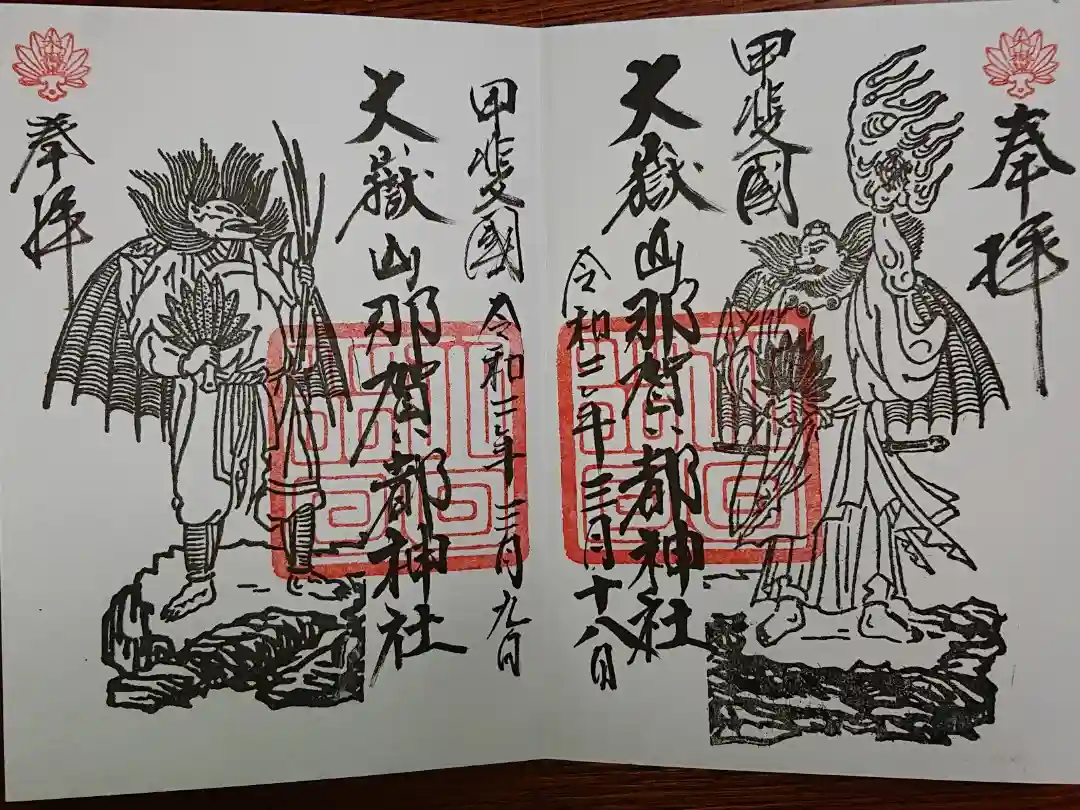 奉拝
甲斐國
大嶽山那賀都神社
令和二年三月十八日
甲斐國
令和二年三月九日
大嶽山那賀都神社
奉拝